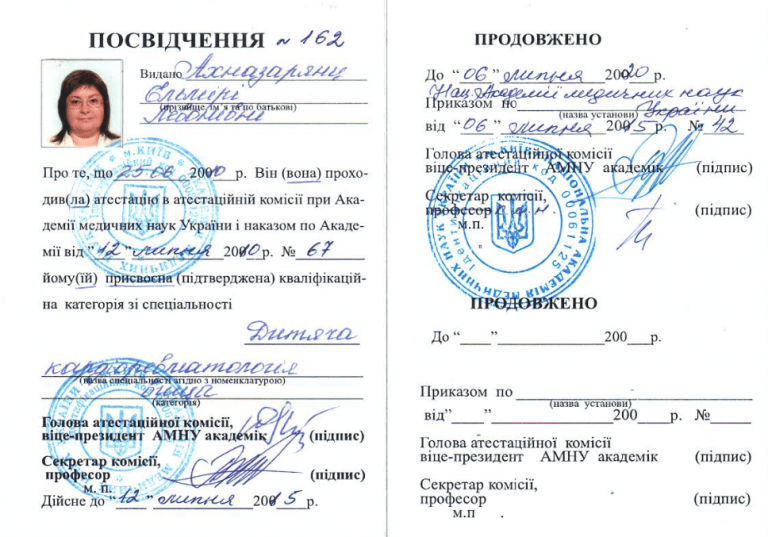 ПОСВІДЧЕННЯ № 162
Видано Ахназарянц
Ельміні
(прізвище, ім'я та по батькові)
Леонівні
Про те, що 25.06 20010 р. Він (вона) прохо-
див(ла) атестацію в атестаційній комісії при Ака-
демії медичних наук України і наказом по Акаде-
мії від "12" липня 20010 р. № 67
йому(їй) присвоєна (підтверджена) кваліфікацій-
на категорія зі спеціальності
Дитяча
кардіоревматологія
(назва спеціальності згідно з номенклатурою)
вища
(категорія)
Голова атестаційної комісії,
віце-президент АМНУ академік (підпис)
Секретар комісії,
професор (підпис)
м. п.
Дійсне до "12" липня 20015 р.
ПРОДОВЖЕНО
До "06" липня 20020 р.
Нац. Академії медичних наук
Приказом по України
(назва установи)
від "06" липня 20015 р. № 42
Голова атестаційної комісії
віце-президент АМНУ академік (підпис)
Секретар комісії,
професор к.м.н. (підпис)
м.п.
НАЦІОНАЛЬНА АКАДЕМІЯ МЕДИЧНИХ НАУК УКРАЇНИ
Ідентифікаційний код 00061125
ПРОДОВЖЕНО
До "____"______________200___р.
Приказом по
(назва установи)
від"____"______________200____р. №______
Голова атестаційної комісії
віце-президент АМНУ академік (підпис)
Секретар комісії,
професор (підпис)
м.п .